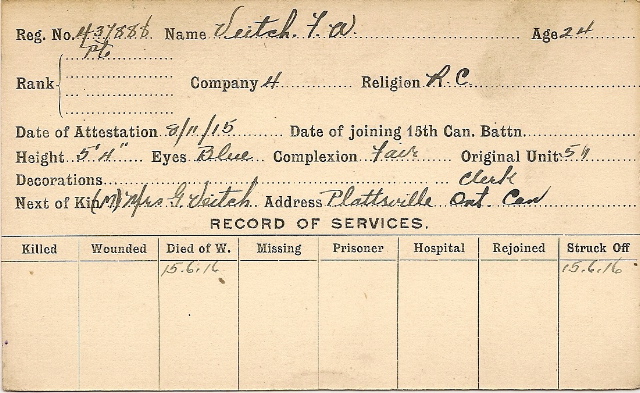 Reg. No. 437886 Name Veitch. F. W. Age 24
Rank Pte
Company 4 Religion R.C.
Date of Attestation 8/11/15 Date of joining 15th Can. Battn.
Height 5'4" Eyes Blue Complexion Fair Original Unit 51
Decorations Clerk
Next of Kin (M) Mrs G. Veitch Address Plattsville Ont. Can
RECORD OF SERVICES.
Killed Wounded Died of W. Missing Prisoner Hospital Rejoined Struck Off
15.6.16 15.6.16